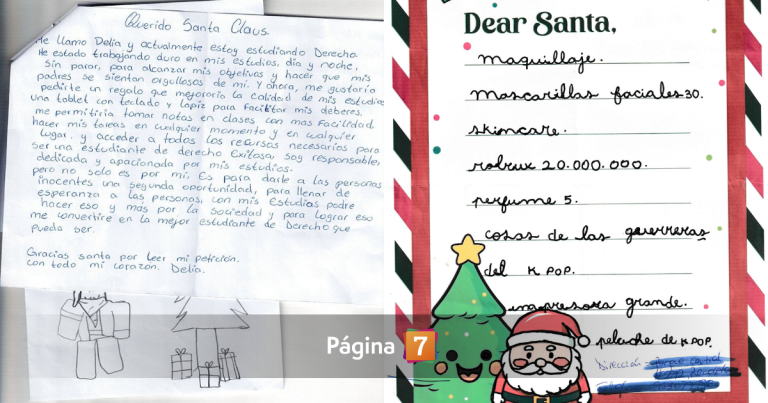 Querido Santa Claus.
Me llamo Delia y actualmente estoy estudiando Derecho.
He estado trabajando duro en mis estudios, día y noche,
sin parar, para alcanzar mis objetivos y hacer que mis
padres se sientan orgullosos de mí. Y ahora, me gustaría
pedirte un regalo que mejoraría la calidad de mis estudios
una tablet con teclado y lapiz para facilitar mis deberes.
me permitiría tomar notas en clases con mas facilidad,
hacer mis tareas en cualquier momento y en cualquier
lugar. y acceder a todos los recursos necesarios para
ser una estudiante de derecho Exitosa, soy responsable,
dedicada y apacionada por mis estudios.
pero no solo es por mi. Es para darle a las personas
inocentes una segunda oportunidad, para llenar de
esperanza a las personas, con mis Estudios podre
hacer eso y más por la Sociedad y para lograr eso
me convertire en la mejor estudiante de Derecho que
pueda ser.
Gracias santa por leer mi petición.
con todo mi corazón. Delia.
Dear Santa,
maquillaje.
mascarillas faciales 30.
skincare.
robux 20.000.000.
perfume 5.
cosas de las guerreras
del K POP.
impresora grande.
peluche de K POP.
Dirección
Página 7